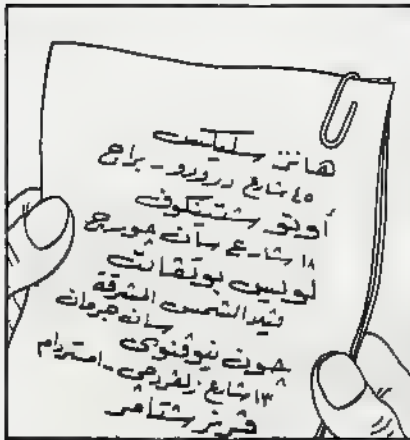 هانز سليتس
٤٥ شارع درودو - براج
أوتو ستينكوف
١٨ شارع سان جورج
لويس بونفانت
فيلا الشمس المشرقة
سان جرمان
جون نيوفنوى
١٣ شارع زلفردجي - امستردام
فرنز شتافر